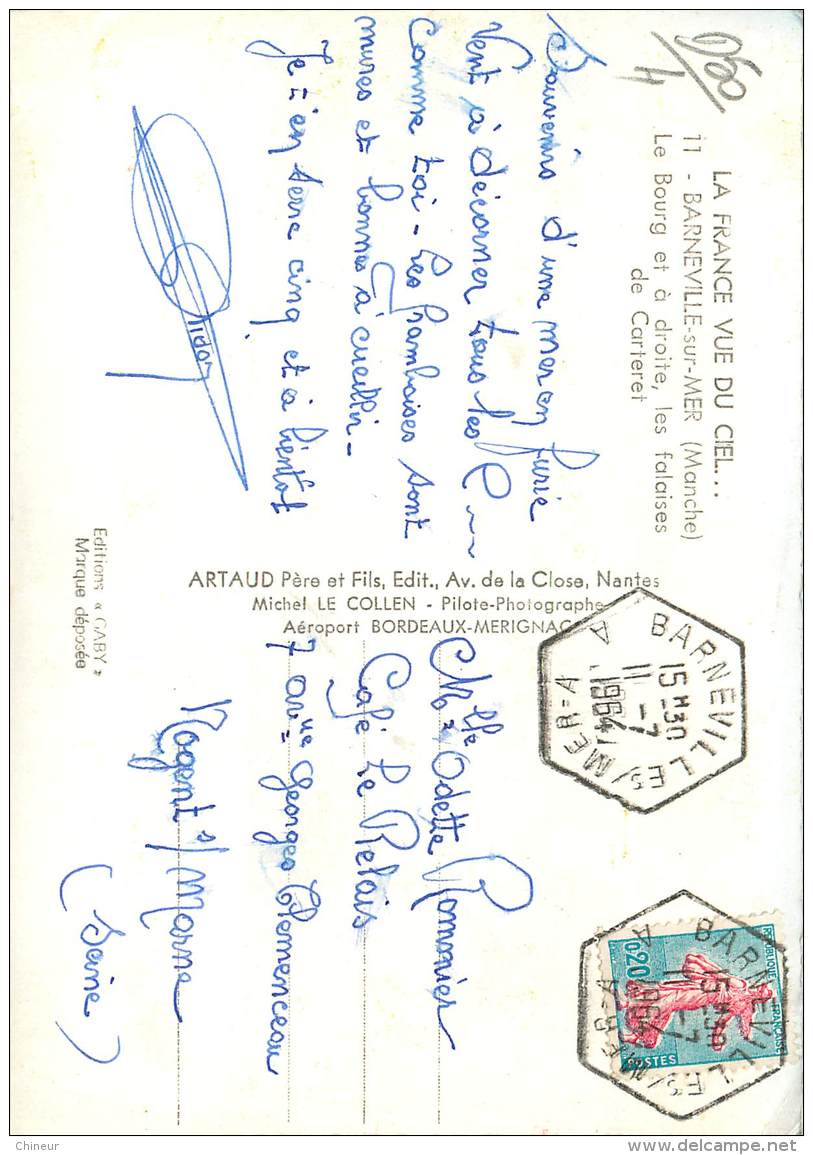 LA FRANCE VUE DU CIEL...
11 - BARNEVILLE-sur-MER (Manche)
Le Bourg et à droite, les falaises
de Carteret
Souvenirs d'une mer en furie
Vent à décorner tous les C---
Comme toi - Les framboises sont
mures et bonnes à cueillir -
Je t'en serre cinq et à bientôt
Editions « GABY »
Marque déposée
ARTAUD Père et Fils, Edit., Av. de la Close, Nantes
Michel LE COLLEN - Pilote-Photographe
Aéroport BORDEAUX-MERIGNAC
BARNEVILLE S/MER-A
15H30
11-7
1964
A
REPUBLIQUE FRANÇAISE
0,20
POSTES
BARNEVILLE S/MER-A
15H30
11-7
1964
A
Melle Odette Rommier
Café Le Relais
7 avue Georges Clemenceau
Nogent s/ Marne
(Seine)
Chineur
delcampe.net